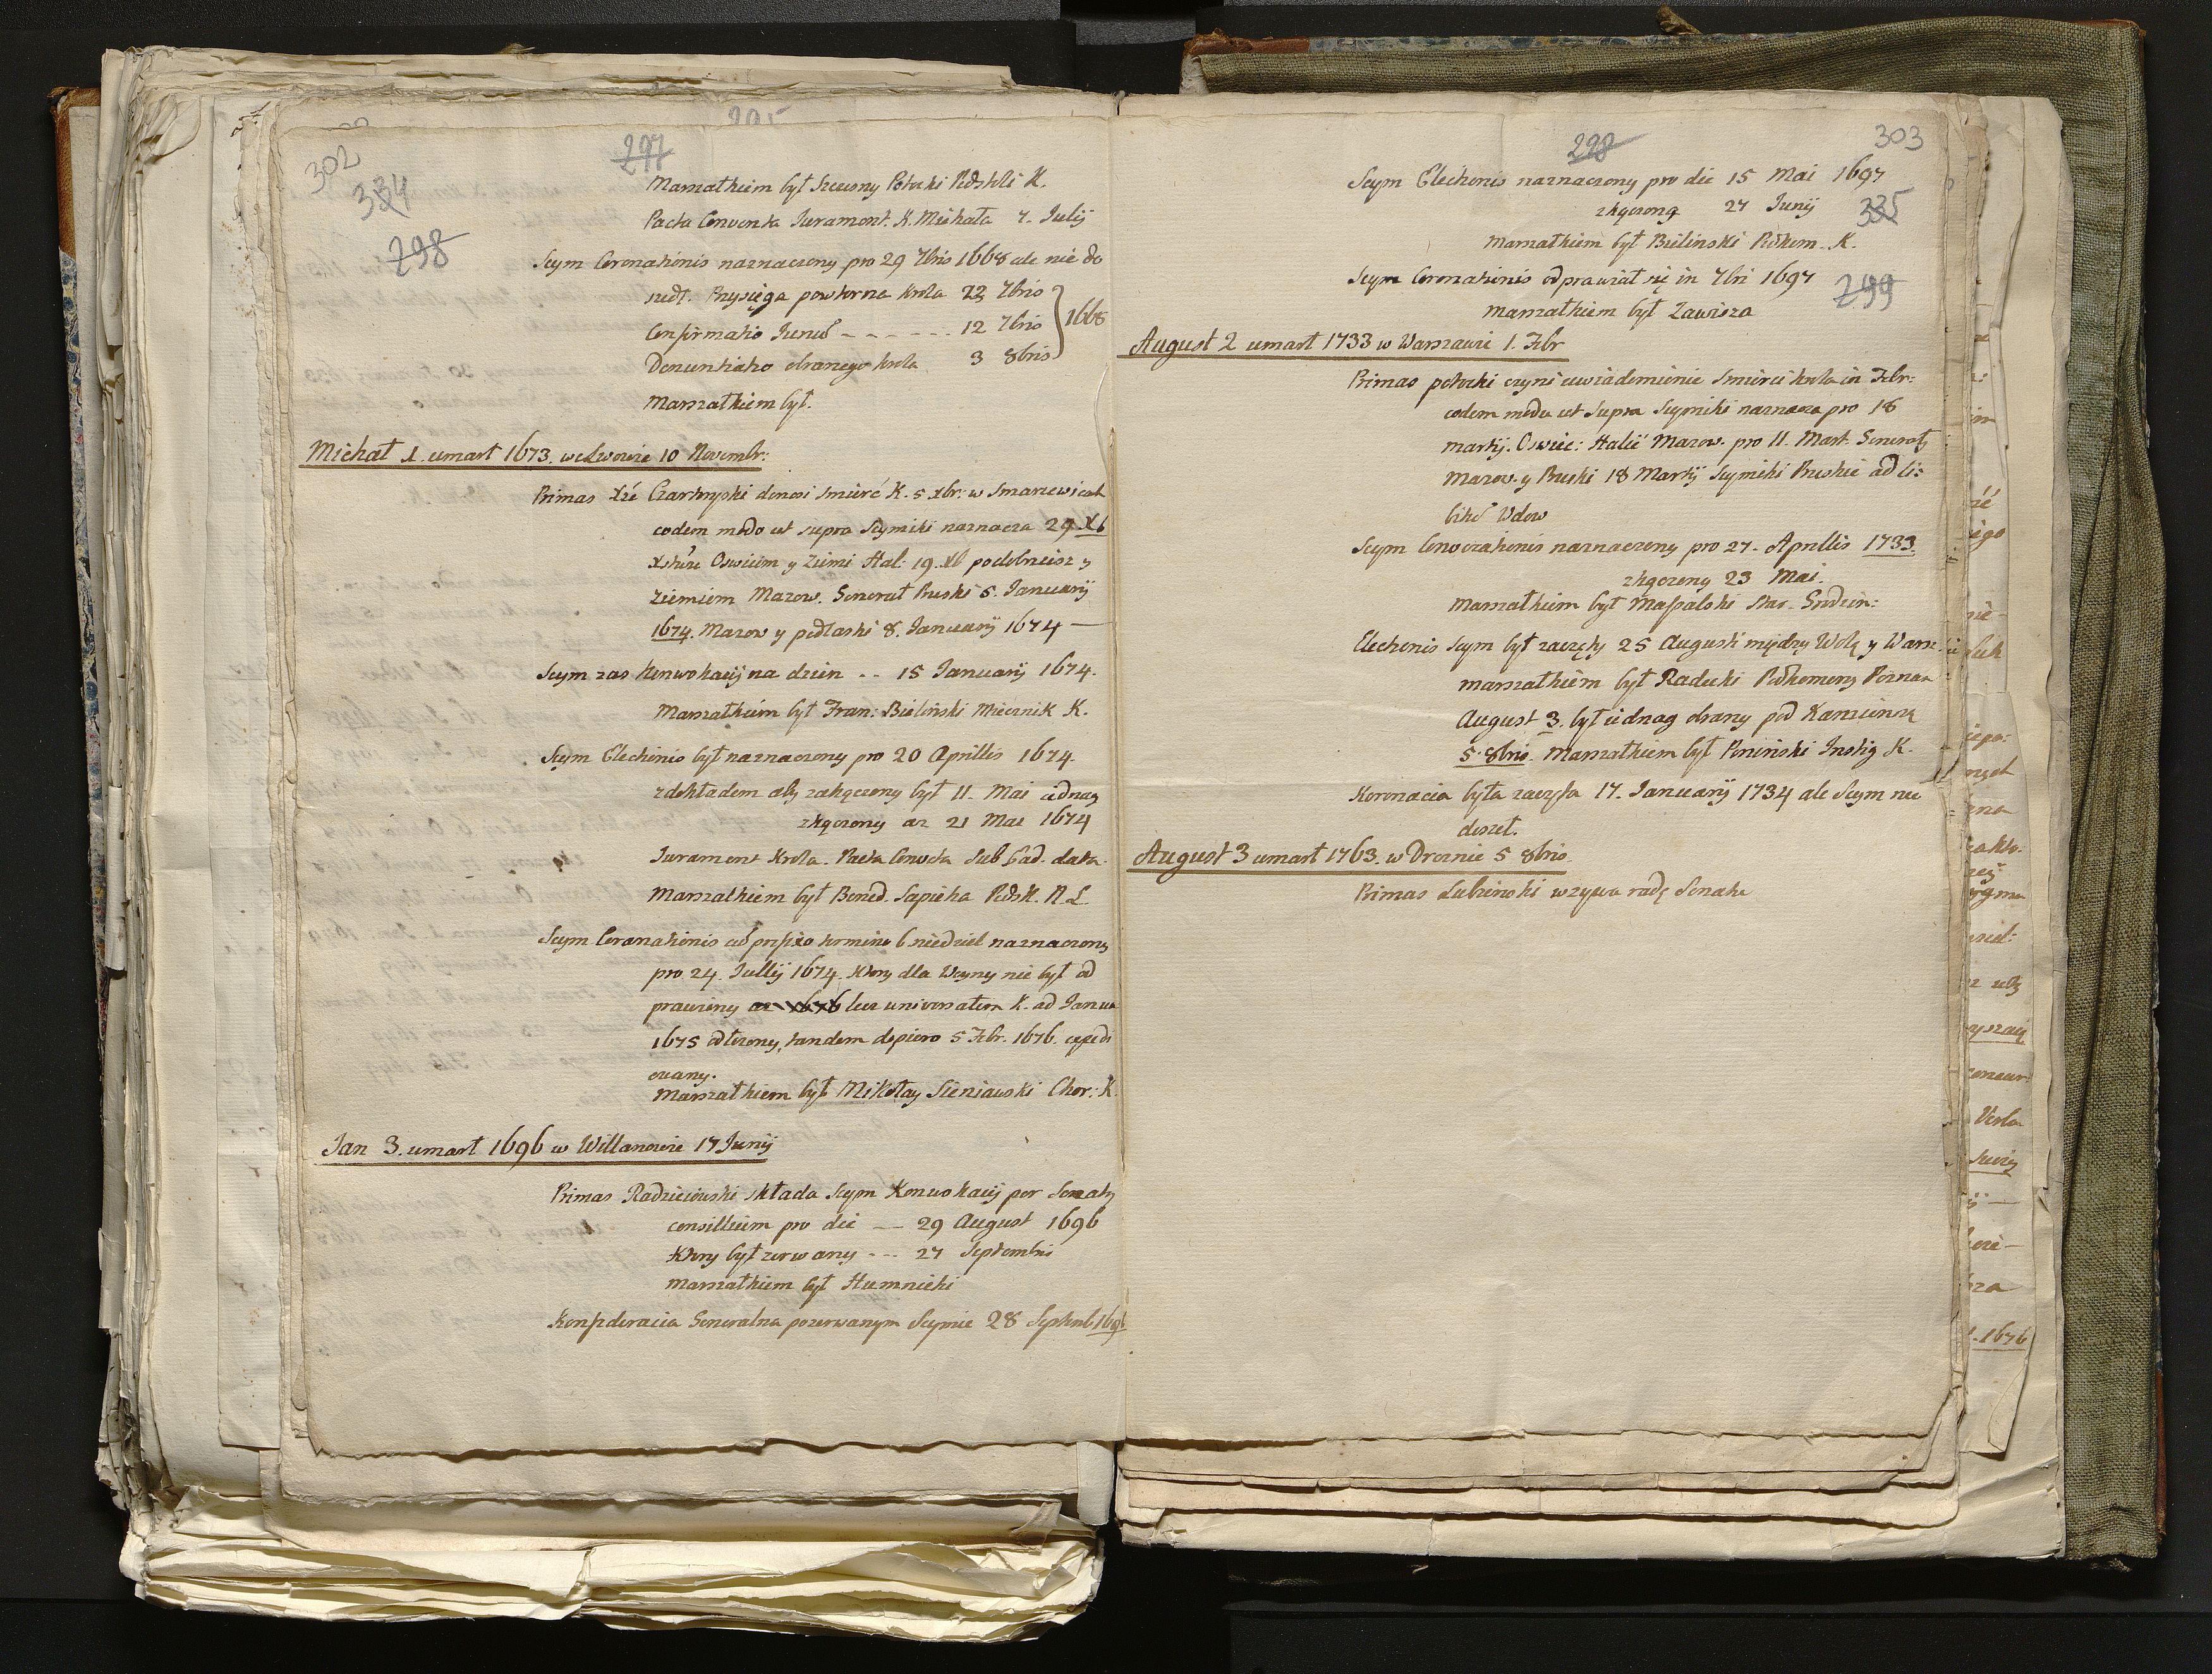 302
297
334
298
Marszałkiem był Szczęsny Potocki Podstoli K.
Pacta Conventa Jurament. K. Michała 7. Julij
Seym Coronationis naznaczony pro 29 7bris 1668 ale nie do
szedł. Przysięga powtorna Krola 22 7bris
Confirmatio Jurium - - - - - - 12 7bris 1668
Denuntiatio obranego Krola 3 8bris
Marszałkiem był.
Michał 1. umarł 1673. we Lwowie 10 Novembr:
Primas Xże Czartoryski donosi smierć K. 5 xbr: w Smarzewicach
eodem modo ut supra Seymiki naznacza 29 Xb
Oswiecim y Ziemi Hal: 19. Xb podobnieisz y
Ziemiom Mazow. Generał Pruski 5. Januarij
1674. Mazow y podlaski 8. Januarij 1674 —
Seym zas Konwokacij na dzien - - 15 Januarij 1674.
Marszałkiem był Fran: Bieliński Miecznik K.
Seym Electionis był naznaczony pro 20 Aprillis 1674.
z dokładem aby zakączony był 11. Mai iednag
zkączony az 21 Mai 1674
Jurament Krola. Pacta Conventa sub Ead. data.
Marszałkiem był Bened. Sapieha Podsk. N L.
Seym Coronationis termino 6 niedziel naznaczony
pro 24. Jullij 1674. Ktory dla Woyny nie był od
prawiony az 1676 lecz uniwersałem K. ad Janua
1675 odłozony, tandem dopiero 5 Febr. 1676. expedi
owany.
Marszałkiem był Mikołay Sieniawski Chor: K.
Jan 3. umarł 1696 w Willanowie 17 Junij
Primas Radzieiowski składa Seym Konwokacij per Senatus
consillium pro die — 29 August 1696
Ktory był zerwany - - - 27 Septembris
Marszałkiem był Humnicki
Konfederacia Generalna po zerwanym Seymie 28 Septemb 1696
298
303
335
299
Seym Electionis naznaczony pro die 15 Mai 1697
zkączony 27 Junij
Marszałkiem był Bielinski Podkom. K.
Seym Coronationis odprawiał się in 7bri 1697
Marszałkiem był Zawisza
August 2 umarł 1733 w Warszawie 1. Febr
Primas potocki czyni uwiadomienie smierci krola in Febr:
eodem modo ut supra Seymiki naznacza pro 18
martij. Oswiec: Halic Mazow. pro 11. Mart. Generały
Mazow. y Pruski 18 Martij Seymiki Pruskie ad li:
bitum Wdow
Seym Convocationis naznaczony pro 27. Aprillis 1733.
zkączony 23 Mai.
Marszałkiem był Massalski Star. Grodzin:
Electionis Seym był zaczęty 25 Augusti między Wolą y Warsz:
marszałkiem był Radecki Podkomorzy Poznan
August 3. był iednag obrany pod Kamieniem
5. 8bris. Marszałkiem był Poniński Instig K.
Koronacia była zaczęta 17. Januarij 1734 ale Seym nie
doszeł.
August 3 umarł 1763. w Dreznie 5 8bris.
Primas Lubienski wzywa radę Senatu